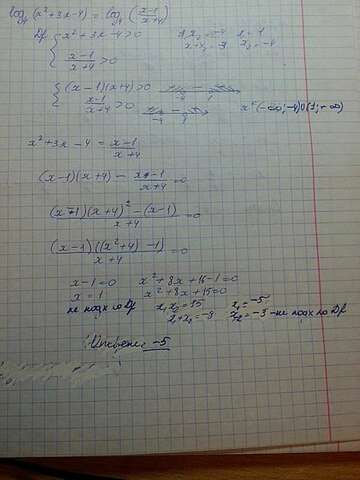 log₄(x²+3x-4) = log₄(x-1/x+4)
Df { x²+3x-4>0 x₁x₂=-4 x=1
x₁+x₂=-3 x₂=-4
x-1/x+4 >0
{ (x-1)(x+4)>0 -4 1
x-1/x+4 >0 -4 1 x ∈ (-∞;-4)∪(1;+∞)
x²+3x-4 = x-1/x+4
(x-1)(x+4) - x-1/x+4 =0
(x-1)(x+4)²-(x-1)/x+4 =0
(x-1)((x²+4)-1)/x+4 =0
x-1=0 x²+8x+16-1=0
x=1 x²+8x+15=0
не подх по Df x₁x₂=15 x₁=-5
x₁+x₂=-8 x₂=-3 - не подх по Df
Ответ: -5